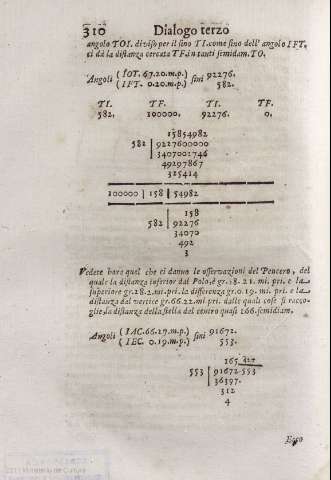 310 Dialogo terzo
angolo TOI. diviso per il sino TI. come sino dell' angolo IFT.
ci dà la distanza cercata TF. in tanti semidiam. TO.
Angoli ( IOT. 67.20.m.p.) sini 92276.
( IFT. 0.20.m.p.) 582.
TI. TF. TI. TF.
582. 100000. 92276. 0.
15854982
582 | 9227600000
3407002746
49297867
325414
100000 | 158 | 54982
158
582 | 92276
34070
492
3
Vedete hora quel che ci danno le osservazioni del Peucero, del
quale la distanza inferior dal Polo, è gr. 28. 21. mi. pri. e la
superiore gr. 28. 2. mi. pri. la differenza gr. 0. 19. mi. pri. e la
distanza dal vertice gr. 66. 22. mi. pri. dalle quali cose si racco-
glie, la distanza della stella dal centro quasi 166. semidiam.
Angoli ( IAC. 66.27.m.p.) sini 91672.
( IEC. 0.19.m.p.) 553.
165 427
553 | 91672 553
36397.
312
4
Ecco